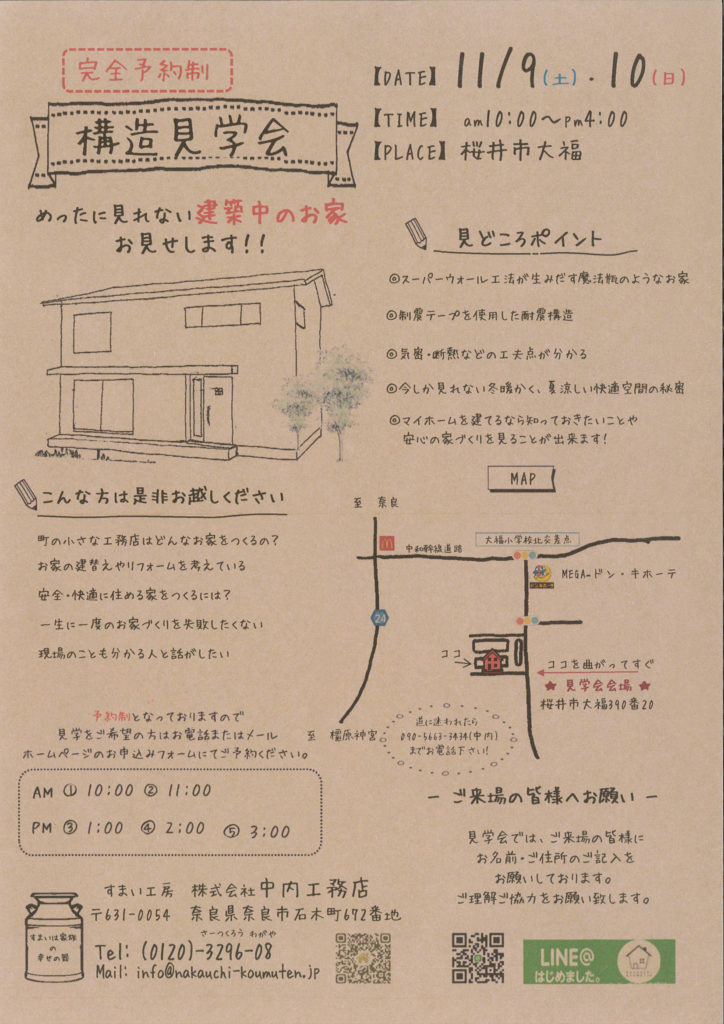 完全予約制
構造見学会
【DATE】 11/9(土)・10(日)
【TIME】 am10:00〜pm4:00
【PLACE】桜井市大福
めったに見れない建築中のお家
お見せします!!
見どころポイント
◎スーパーウォール工法が生みだす魔法瓶のようなお家
◎制震テープを使用した耐震構造
◎気密・断熱などの工夫点が分かる
◎今しか見れない冬暖かく、夏涼しい快適空間の秘密
◎マイホームを建てるなら知っておきたいことや
安心の家づくりを見ることが出来ます!
こんな方は是非お越しください
町の小さな工務店はどんなお家をつくるの?
お家の建替えやリフォームを考えている
安全・快適に住める家をつくるには?
一生に一度のお家づくりを失敗したくない
現場のことも分かる人と話がしたい
MAP
至 奈良
中和幹線道路
大福小学校北交差点
MEGAドン・キホーテ
24
ココ
ココを曲がってすぐ
★ 見学会会場 ★
桜井市大福390番20
至 橿原神宮
道に迷われたら
090-5663-3434(中内)
までお電話下さい!
予約制となっておりますので
見学をご希望の方はお電話またはメール
ホームページのお申込みフォームにてご予約ください。
AM ① 10:00 ② 11:00
PM ③ 1:00 ④ 2:00 ⑤ 3:00
― ご来場の皆様へお願い ―
見学会では、ご来場の皆様に
お名前・ご住所のご記入を
お願いしております。
ご理解ご協力をお願い致します。
すまいは家族
の
幸せの器
すまい工房 株式会社中内工務店
〒631-0054 奈良県奈良市石木町672番地
さーつくろう わがや
Tel: (0120)-3296-08
Mail: info@nakauchi-koumuten.jp
LINE@
はじめました。